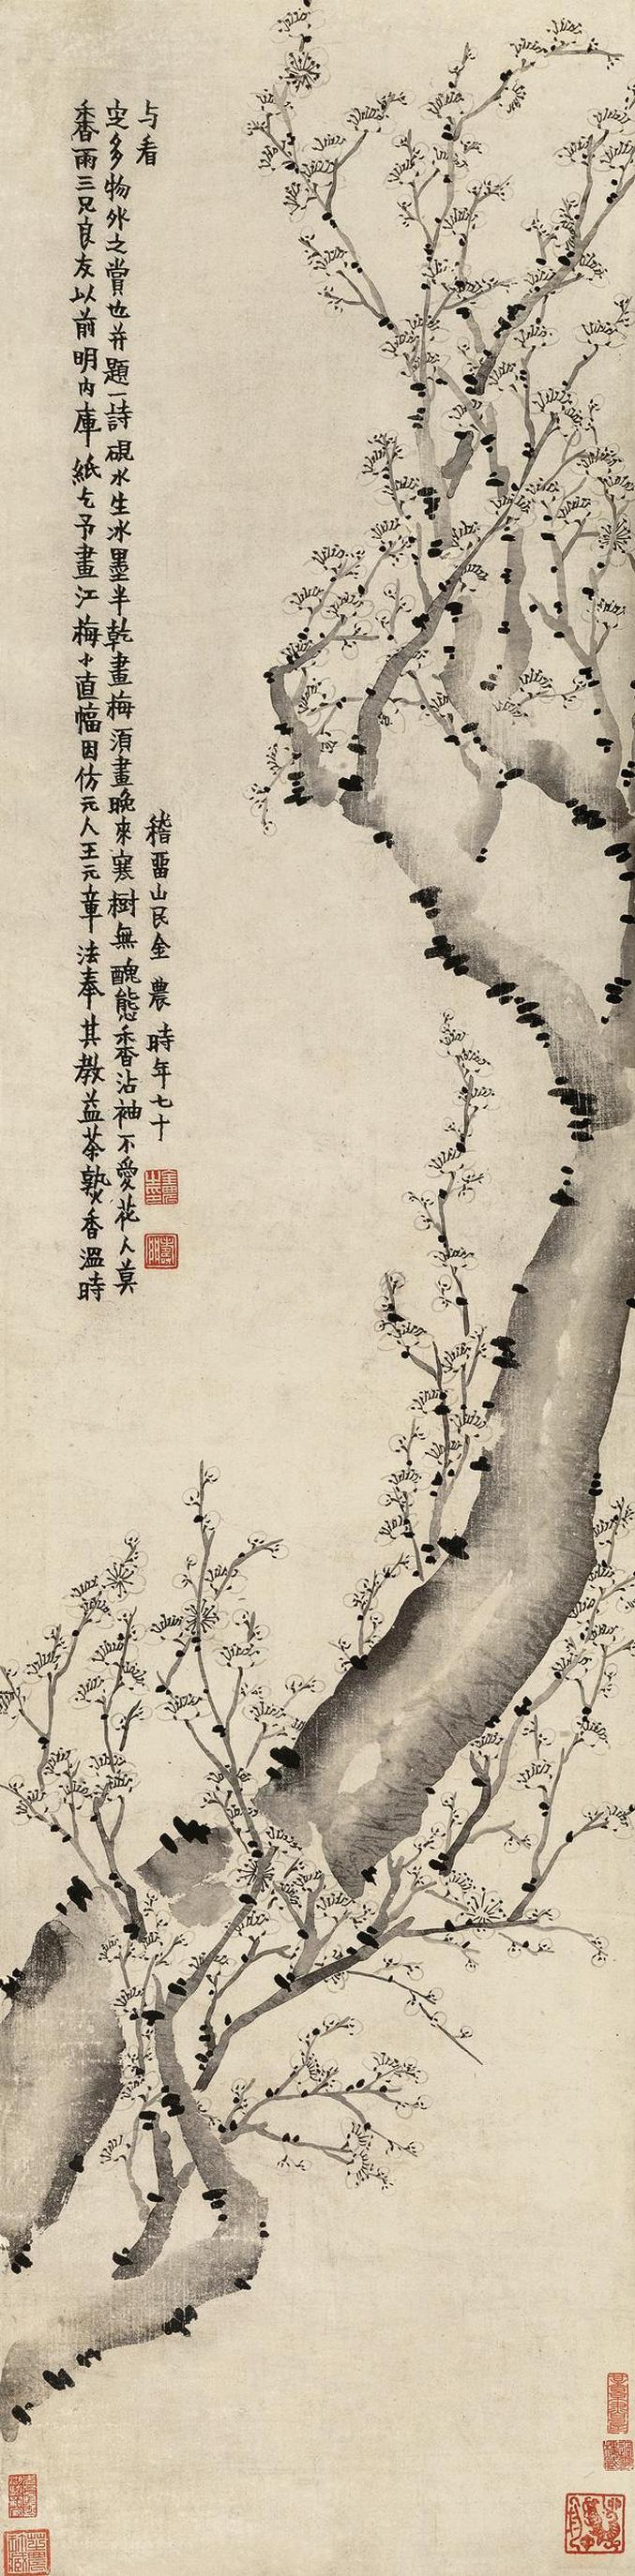 香雨三兄良友以前明内庫紙乞予畫江梅小直幅因仿元人王元章法奉其教益茶孰香溫時
定多物外之賞也并題一詩硯水生冰墨半乾畫梅須畫晚來寒樹無醜態香沾袖不愛花人莫
与看
稽畱山民金農時年七十